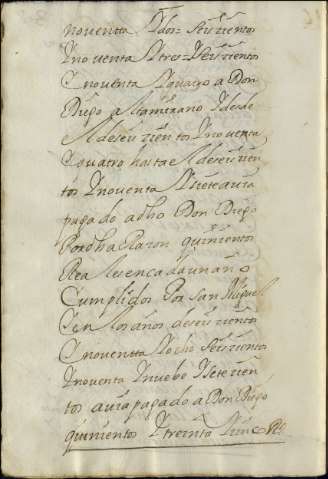 noventa Ydos= Seisçientos
Ynoventa Ytres= Seisçientos
Ynoventa Yquatro a Don
Diego altamirano Ydesde
el deseisçientos Ynoventa
Yquatro hasta el deseisçien
tos Ynoventa Ysiete auia
pagado adho Don Diego
Por dha Raçon quinientos
Rea les en cadaun año
Cumplidos Por San Miguel
Yen los años deseisçientos
Ynoventa Yocho Seisçientos
Ynoventa Ynuebe Ysete çien
tos auia pagado a Don Diego
quinientos Ytreinta Rs